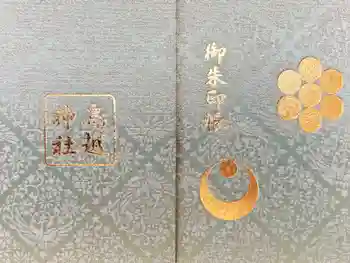 御朱印帳
高越
神社